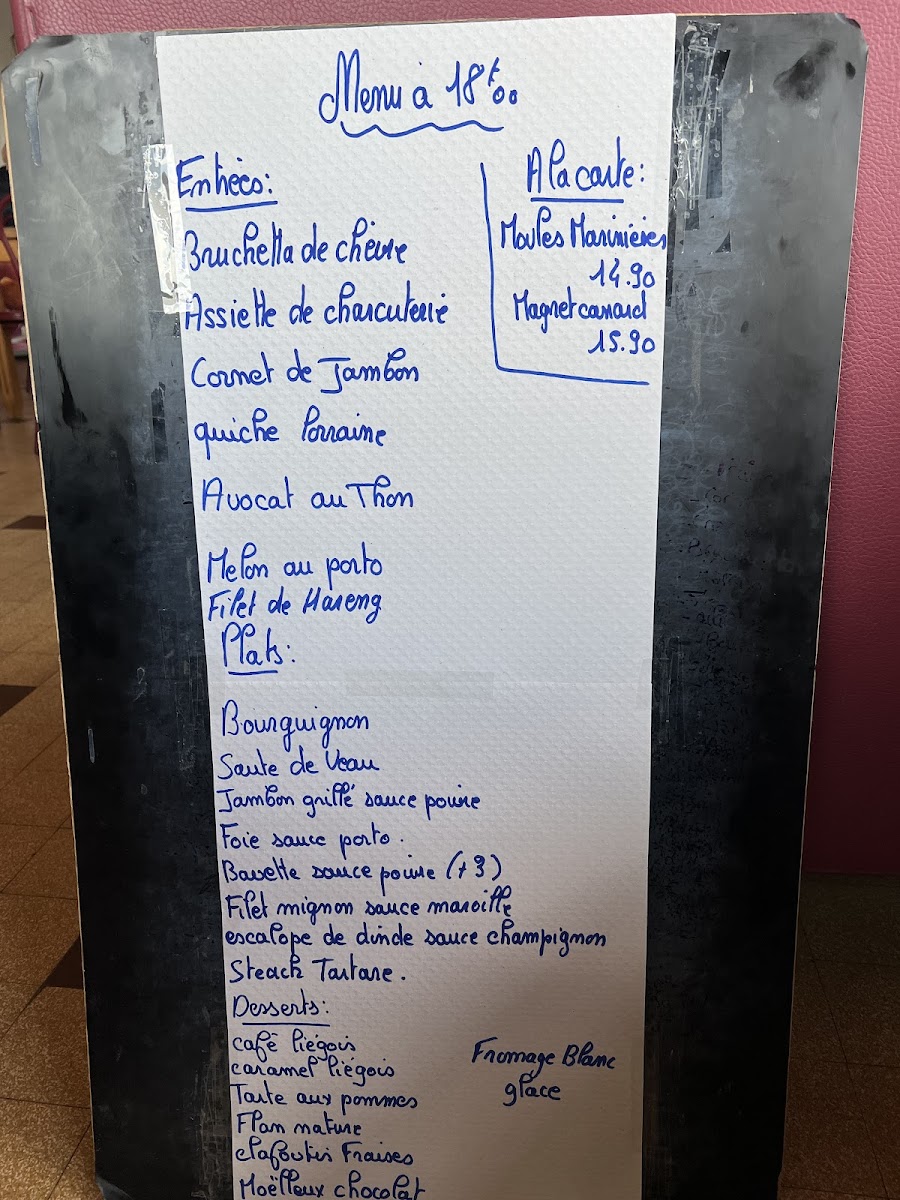 Menu à 18€00
Entrées:
Bruchetta de chèvre
Assiette de charcuterie
Cornet de Jambon
quiche lorraine
Avocat au Thon
Melon au porto
Filet de Hareng
A la carte:
Moules Marinières
14.90
Magret canard
15.90
Plats:
Bourguignon
Saute de Veau
Jambon grillé sauce poivre
Foie sauce porto.
Bavette sauce poivre (+3)
Filet mignon sauce maroille
escalope de dinde sauce champignon
Steack Tartare.
Desserts:
café liégois
caramel liégois
Tarte aux pommes
Flan nature
clafoutis Fraises
Moëlleux chocolat
Fromage Blanc
glace